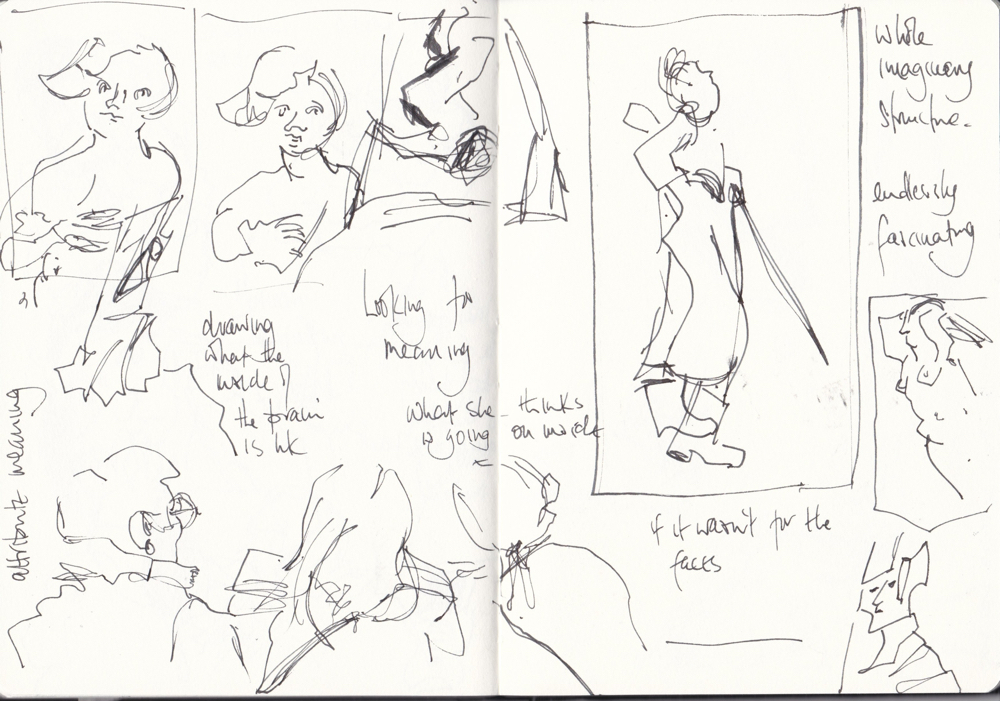 drawing
what the
inside of
the brain
is like
Looking for
meaning
what she thinks
is going on inside
attribute meaning
whole
imaginary
structure.
endlessly
fascinating
if it wasn't for the
faces